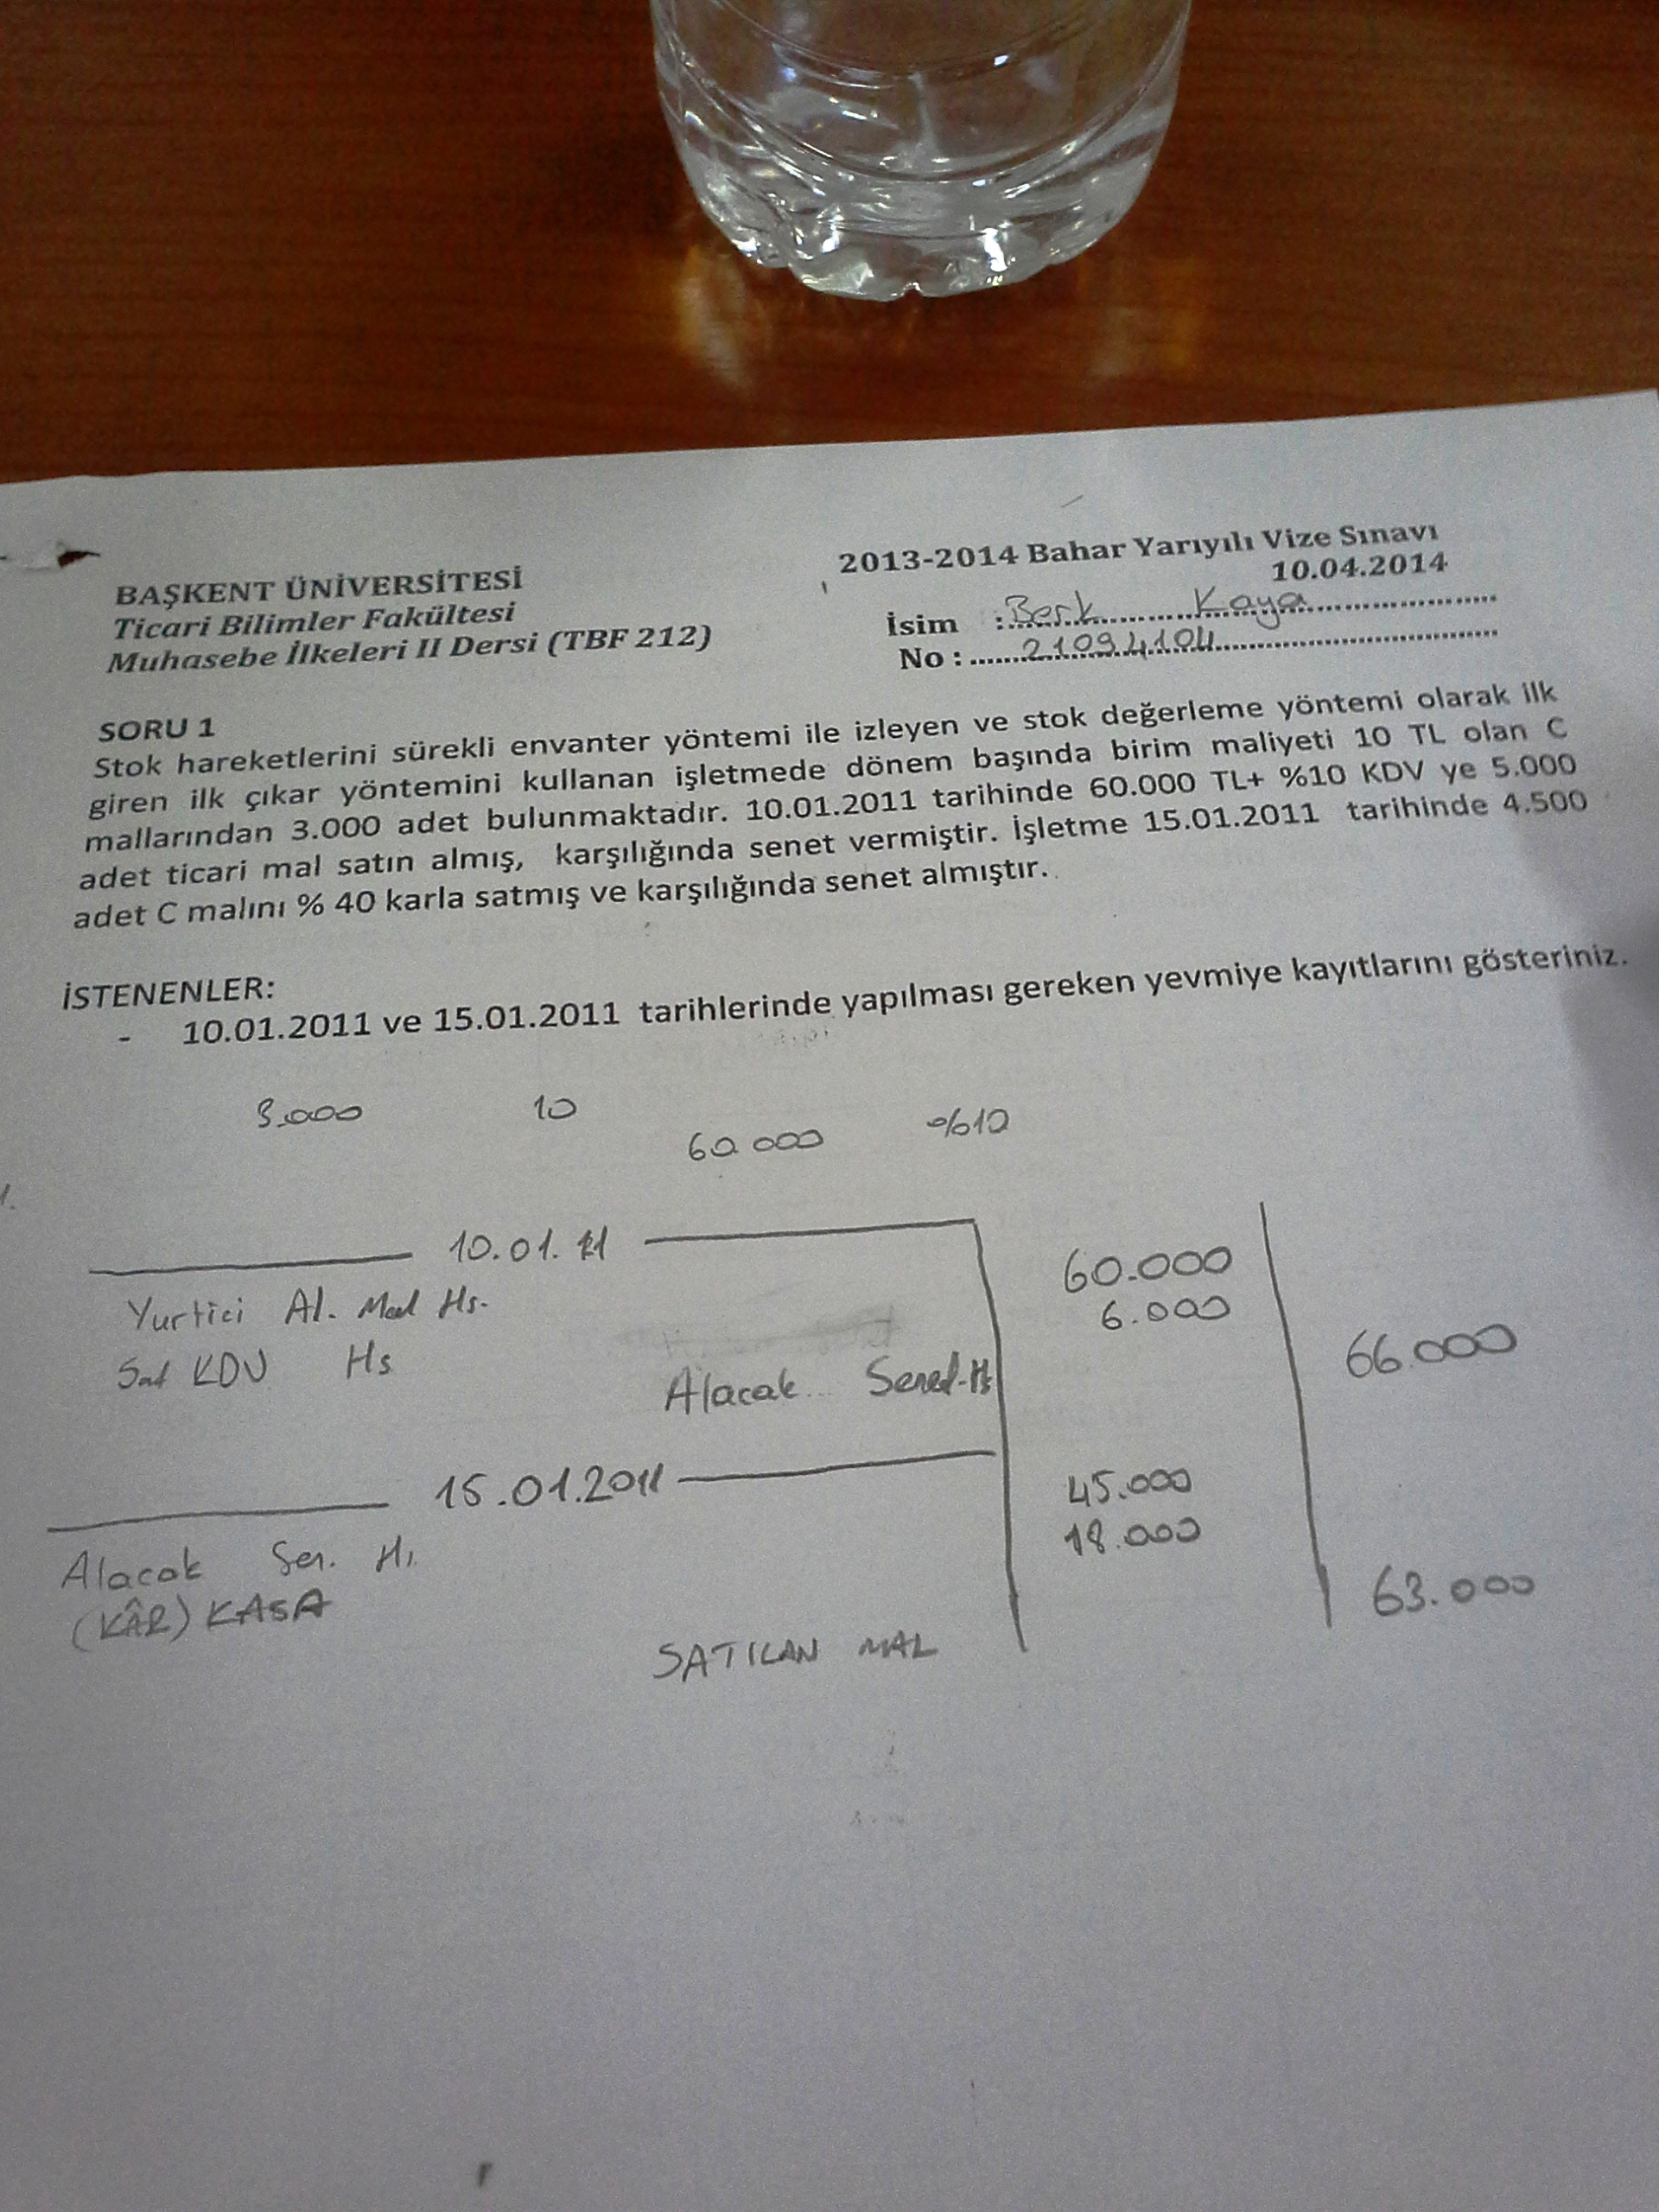 BAŞKENT ÜNİVERSİTESİ
Ticari Bilimler Fakültesi
Muhasebe İlkeleri II Dersi (TBF 212)
2013-2014 Bahar Yarıyılı Vize Sınavı
10.04.2014
İsim : Berk Kaya
No : 21094104
SORU 1
Stok hareketlerini sürekli envanter yöntemi ile izleyen ve stok değerleme yöntemi olarak ilk
giren ilk çıkar yöntemini kullanan işletmede dönem başında birim maliyeti 10 TL olan C
mallarından 3.000 adet bulunmaktadır. 10.01.2011 tarihinde 60.000 TL+ %10 KDV ye 5.000
adet ticari mal satın almış, karşılığında senet vermiştir. İşletme 15.01.2011 tarihinde 4.500
adet C malını % 40 karla satmış ve karşılığında senet almıştır.
İSTENENLER:
- 10.01.2011 ve 15.01.2011 tarihlerinde yapılması gereken yevmiye kayıtlarını gösteriniz.
3.000 10 60.000 %10
1.
10.01.11
60.000
Yurtici Al. Mal Hs.
6.000
Sat KDV Hs
66.000
Alacak Sened. Hs
15.01.2011
45.000
18.000
Alacak Sen. Hs
63.000
(KÂR) KASA
SATILAN MAL